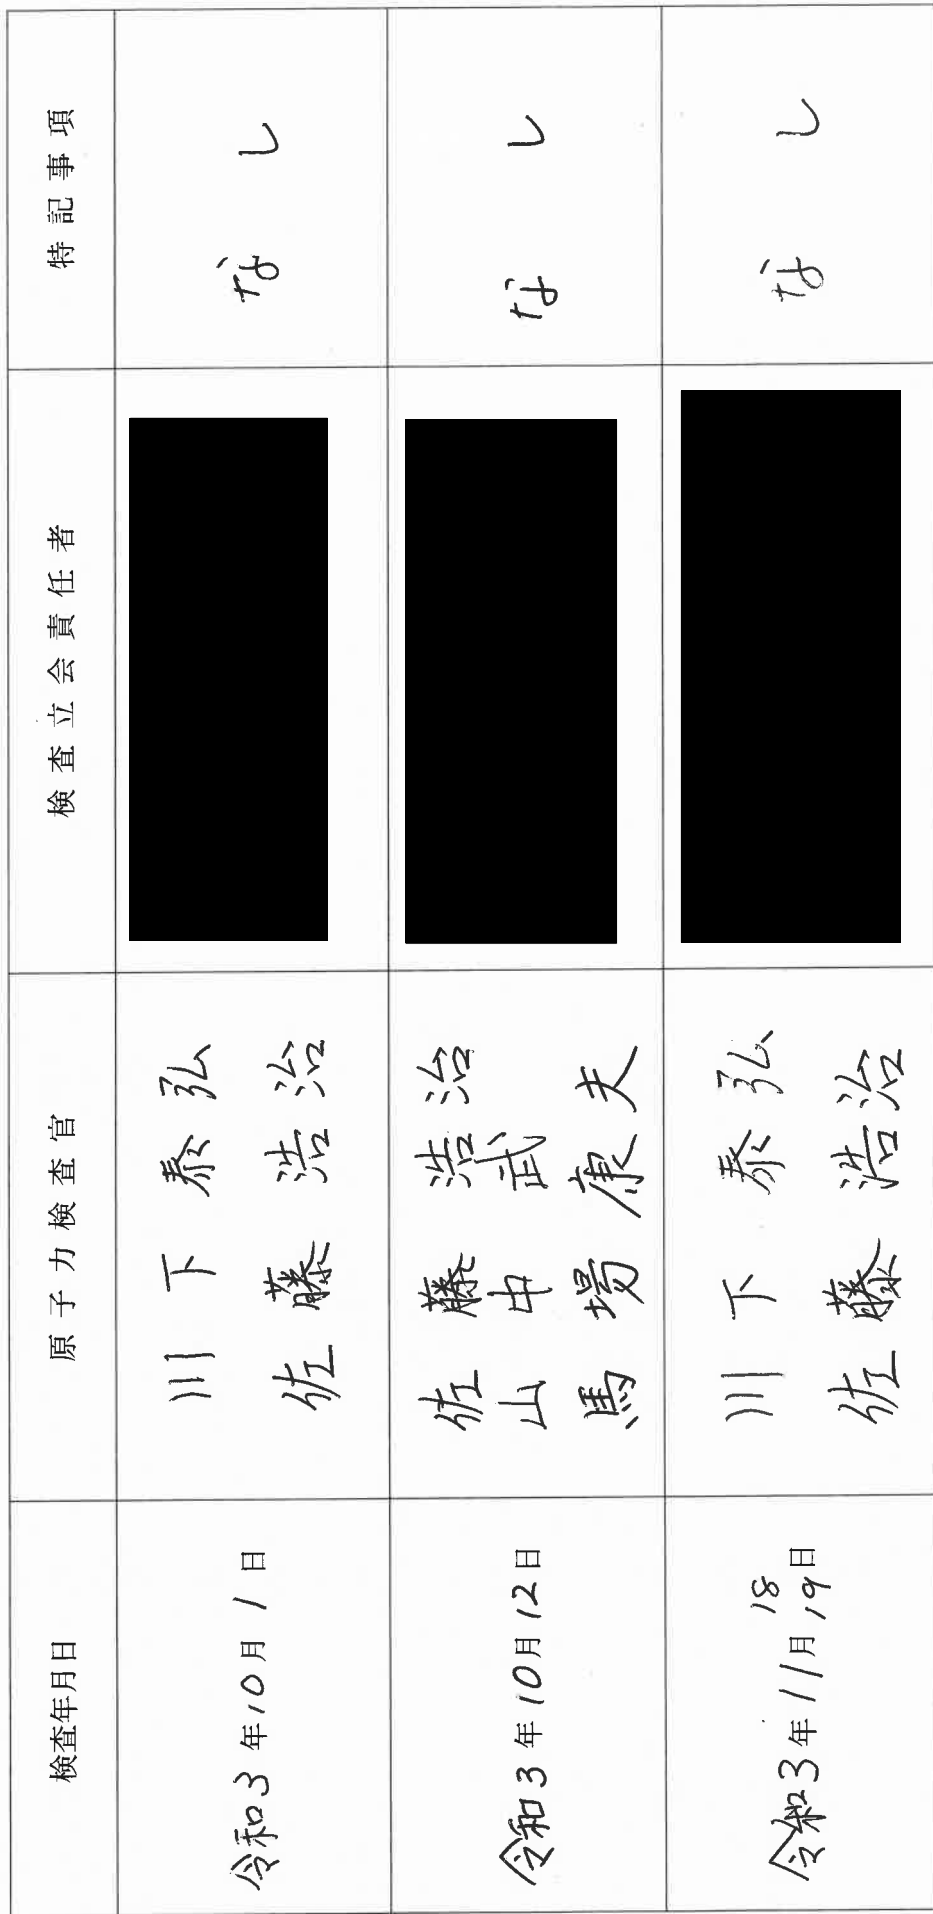 検査年月日 原子力検査官 検査立会責任者 特記事項
令和3年10月1日
川下泰弘
佐藤浩治
なし
令和3年10月12日
佐藤浩治
山中武
馬場康夫
なし
令和3年11月18日
19
川下泰弘
佐藤浩治
なし